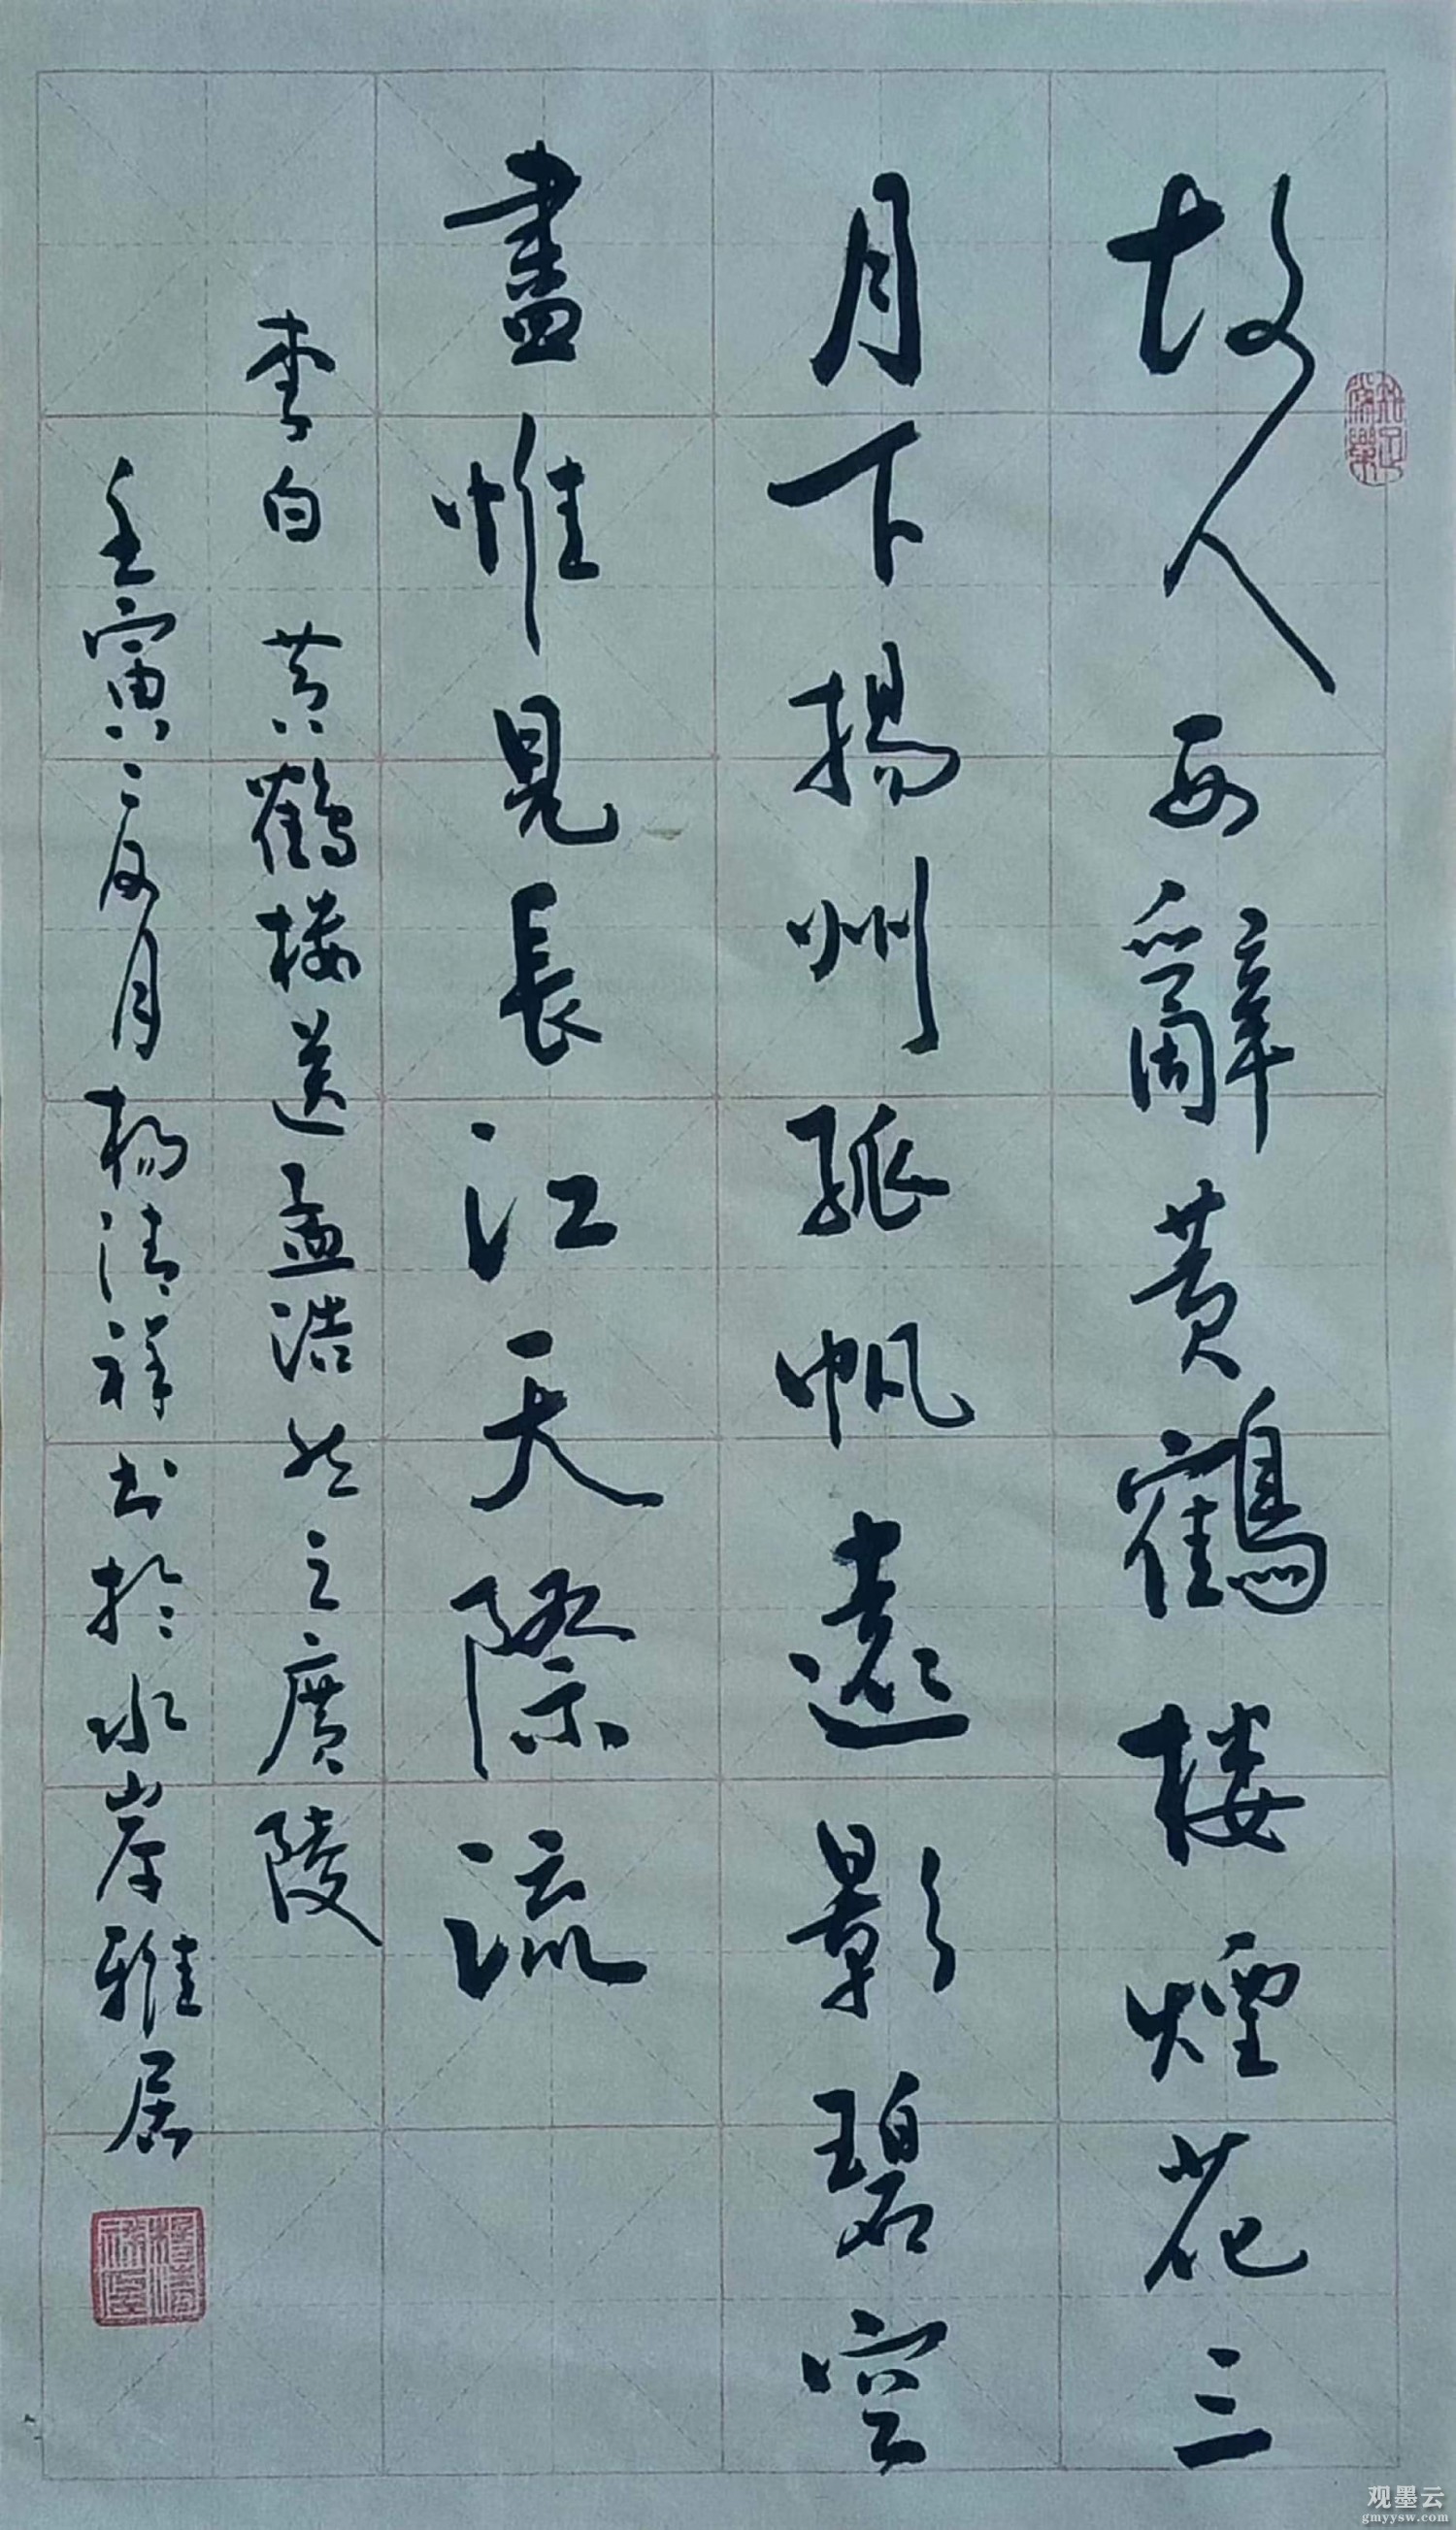 故人西辭黄鶴楼煙花三
月下揚州孤帆遠影碧空
盡惟見長江天際流
李白黄鶴楼送孟浩然之廣陵
壬寅夏月杨清祥书於水岸雅居
知足常樂
楊清祥印
观墨云
gmyysw.com